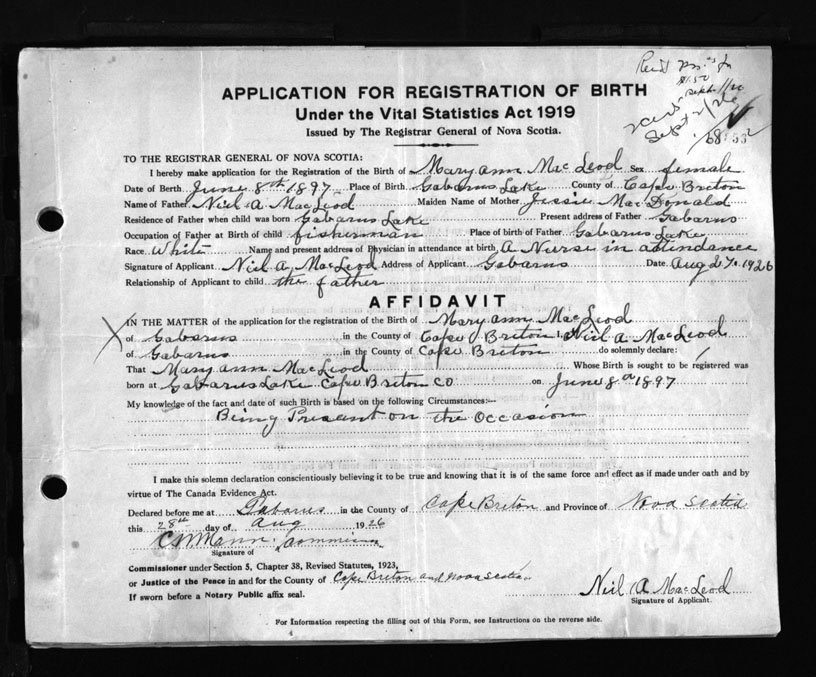 Rec'd
$1.50
Sept 11/26
Sept 2/26
68
APPLICATION FOR REGISTRATION OF BIRTH
Under the Vital Statistics Act 1919
Issued by The Registrar General of Nova Scotia.
TO THE REGISTRAR GENERAL OF NOVA SCOTIA:
I hereby make application for the Registration of the Birth of Mary ann MacLeod Sex female
Date of Birth June 8th 1897 Place of Birth Gabarus Lake County of Cape Breton
Name of Father Niel A MacLeod Maiden Name of Mother Jessie MacDonald
Residence of Father when child was born Gabarus Lake Present address of Father Gabarus
Occupation of Father at Birth of child fisherman Place of birth of Father Gabarus Lake
Race White Name and present address of Physician in attendance at birth A Nurse in attendance
Signature of Applicant Niel A. MacLeod Address of Applicant Gabarus Date Aug 27. 1926
Relationship of Applicant to child the father
AFFIDAVIT
X IN THE MATTER of the application for the registration of the Birth of Mary ann MacLeod
of Gabarus in the County of Cape Breton I, Niel A. MacLeod
of Gabarus in the County of Cape Breton do solemnly declare:
That Mary ann MacLeod Whose Birth is sought to be registered was
born at Gabarus Lake Cape Breton Co on June 8th 1897
My knowledge of the fact and date of such Birth is based on the following Circumstances:—
Being Present on the Occasion
I make this solemn declaration conscientiously believing it to be true and knowing that it is of the same force and effect as if made under oath and by
virtue of The Canada Evidence Act.
Declared before me at Gabarus in the County of Cape Breton and Province of Nova Scotia
this 28th day of Aug 1926
Mann
Signature of
Commissioner under Section 5, Chapter 38, Revised Statutes, 1923,
or Justice of the Peace in and for the County of Cape Breton and Nova Scotia
If sworn before a Notary Public affix seal.
Niel A MacLeod
Signature of Applicant.
For Information respecting the filling out of this Form, see Instructions on the reverse side.
4